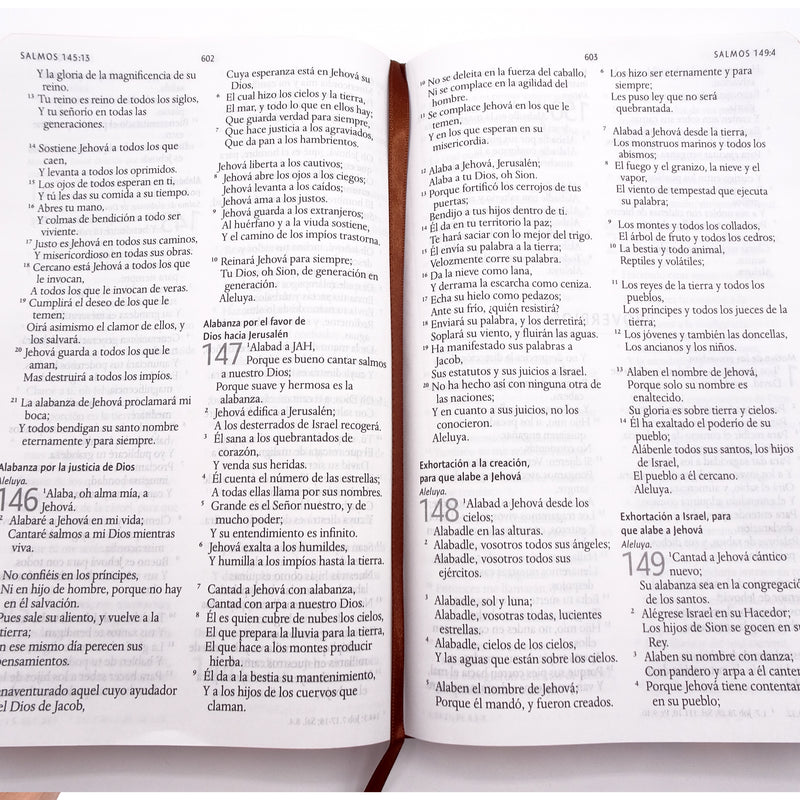 SALMOS 145:13
602
Y la gloria de la magnificencia de su
reino.
13 Tu reino es reino de todos los siglos,
Y tu señorío en todas las
generaciones.
14 Sostiene Jehová a todos los que
caen,
Y levanta a todos los oprimidos.
15 Los ojos de todos esperan en ti,
Y tú les das su comida a su tiempo.
16 Abres tu mano,
Y colmas de bendición a todo ser
viviente.
17 Justo es Jehová en todos sus caminos,
Y misericordioso en todas sus obras.
18 Cercano está Jehová a todos los que
le invocan,
A todos los que le invocan de veras.
19 Cumplirá el deseo de los que le
temen;
Oirá asimismo el clamor de ellos, y
los salvará.
20 Jehová guarda a todos los que le
aman,
Mas destruirá a todos los impíos.
21 La alabanza de Jehová proclamará mi
boca;
Y todos bendigan su santo nombre
eternamente y para siempre.
Alabanza por la justicia de Dios
Aleluya.
146 1Alaba, oh alma mía, a
Jehová.
2 Alabaré a Jehová en mi vida;
Cantaré salmos a mi Dios mientras
viva.
No confiéis en los príncipes,
Ni en hijo de hombre, porque no hay
en él salvación.
Pues sale su aliento, y vuelve a la
tierra;
en ese mismo día perecen sus
pensamientos.
enaventurado aquel cuyo ayudador
el Dios de Jacob,
Cuya esperanza está en Jehová su
Dios,
6 El cual hizo los cielos y la tierra,
El mar, y todo lo que en ellos hay;
Que guarda verdad para siempre,
7 Que hace justicia a los agraviados,
Que da pan a los hambrientos.
Jehová liberta a los cautivos;
8 Jehová abre los ojos a los ciegos;
Jehová levanta a los caídos;
Jehová ama a los justos.
9 Jehová guarda a los extranjeros;
Al huérfano y a la viuda sostiene,
Y el camino de los impíos trastorna.
10 Reinará Jehová para siempre;
Tu Dios, oh Sion, de generación en
generación.
Aleluya.
Alabanza por el favor de
Dios hacia Jerusalén
147 1Alabad a JAH,
Porque es bueno cantar salmos
a nuestro Dios;
Porque suave y hermosa es la
alabanza.
2 Jehová edifica a Jerusalén;
A los desterrados de Israel recogerá.
3 Él sana a los quebrantados de
corazón,
Y venda sus heridas.
4 Él cuenta el número de las estrellas;
A todas ellas llama por sus nombres.
5 Grande es el Señor nuestro, y de
mucho poder;
Y su entendimiento es infinito.
6 Jehová exalta a los humildes,
Y humilla a los impíos hasta la tierra.
7 Cantad a Jehová con alabanza,
Cantad con arpa a nuestro Dios.
8 Él es quien cubre de nubes los cielos,
El que prepara la lluvia para la tierra,
El que hace a los montes producir
hierba.
9 Él da a la bestia su mantenimiento,
Y a los hijos de los cuervos que
claman.
603
SALMOS 149:4
10 No se deleita en la fuerza del caballo,
Ni se complace en la agilidad del
hombre.
11 Se complace Jehová en los que le
temen,
Y en los que esperan en su
misericordia.
12 Alaba a Jehová, Jerusalén;
Alaba a tu Dios, oh Sion.
13 Porque fortificó los cerrojos de tus
puertas;
Bendijo a tus hijos dentro de ti.
14 Él da en tu territorio la paz;
Te hará saciar con lo mejor del trigo.
15 Él envía su palabra a la tierra;
Velozmente corre su palabra.
16 Da la nieve como lana,
Y derrama la escarcha como ceniza.
17 Echa su hielo como pedazos;
Ante su frío, ¿quién resistirá?
18 Enviará su palabra, y los derretirá;
Soplará su viento, y fluirán las aguas.
19 Ha manifestado sus palabras a
Jacob,
Sus estatutos y sus juicios a Israel.
20 No ha hecho así con ninguna otra de
las naciones;
Y en cuanto a sus juicios, no los
conocieron.
Aleluya.
Exhortación a la creación,
para que alabe a Jehová
Aleluya.
148 1Alabad a Jehová desde los
cielos;
Alabadle en las alturas.
2 Alabadle, vosotros todos sus ángeles;
Alabadle, vosotros todos sus
ejércitos.
3 Alabadle, sol y luna;
Alabadle, vosotras todas, lucientes
estrellas.
4 Alabadle, cielos de los cielos,
Y las aguas que están sobre los cielos.
5 Alaben el nombre de Jehová;
Porque él mandó, y fueron creados.
6 Los hizo ser eternamente y para
siempre;
Les puso ley que no será
quebrantada.
7 Alabad a Jehová desde la tierra,
Los monstruos marinos y todos los
abismos;
8 El fuego y el granizo, la nieve y el
vapor,
El viento de tempestad que ejecuta
su palabra;
9 Los montes y todos los collados,
El árbol de fruto y todos los cedros;
10 La bestia y todo animal,
Reptiles y volátiles;
11 Los reyes de la tierra y todos los
pueblos,
Los príncipes y todos los jueces de la
tierra;
12 Los jóvenes y también las doncellas,
Los ancianos y los niños.
13 Alaben el nombre de Jehová,
Porque solo su nombre es
enaltecido.
Su gloria es sobre tierra y cielos.
14 Él ha exaltado el poderío de su
pueblo;
Alábenle todos sus santos, los hijos
de Israel,
El pueblo a él cercano.
Aleluya.
Exhortación a Israel, para
que alabe a Jehová
Aleluya.
149 1Cantad a Jehová cántico
nuevo;
Su alabanza sea en la congregació
de los santos.
2 Alégrese Israel en su Hacedor;
Los hijos de Sion se gocen en su
Rey.
3 Alaben su nombre con danza;
Con pandero y arpa a él canten
4 Porque Jehová tiene contentam
en su pueblo;